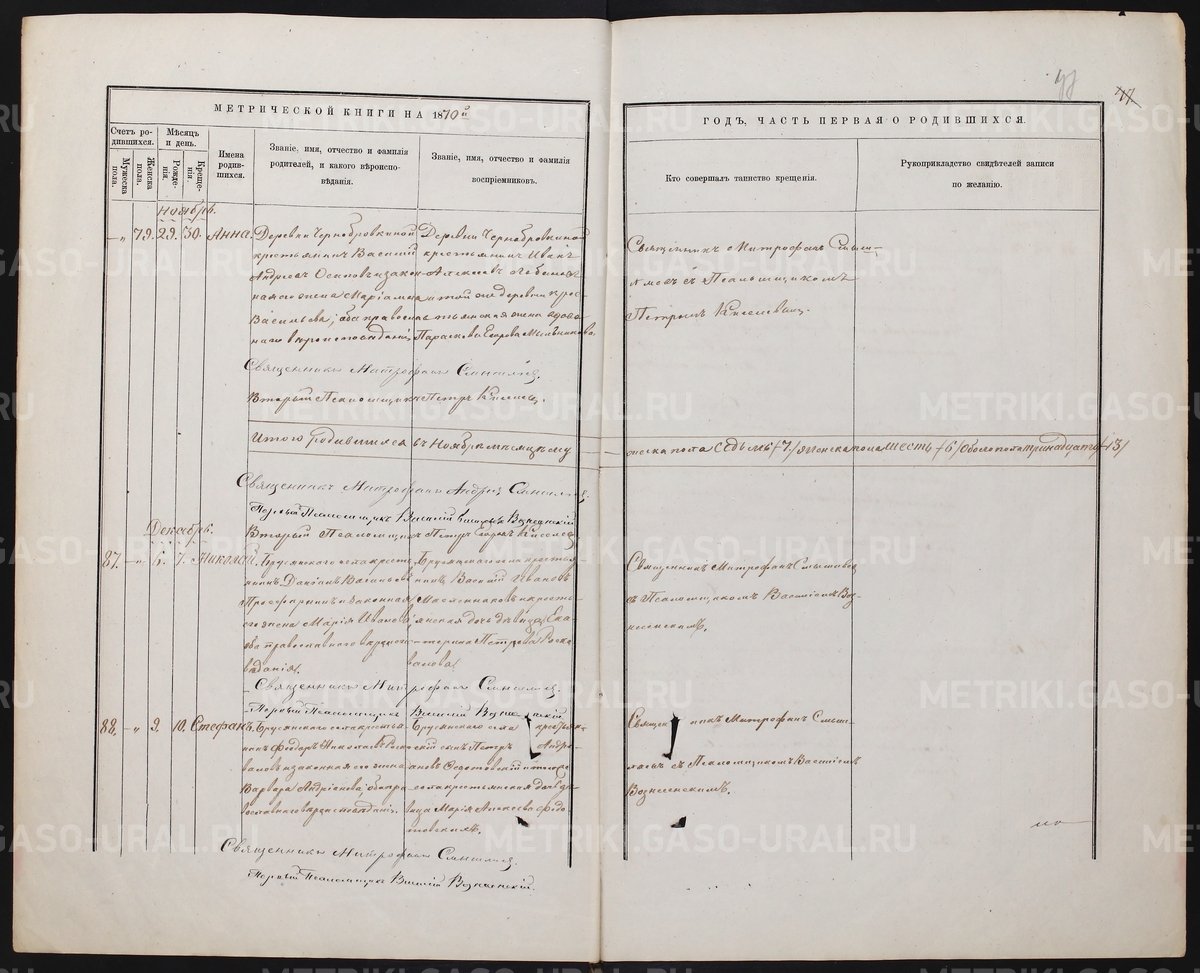 МЕТРИЧЕСКОЙ КНИГИ НА 1870й
ГОДЪ, ЧАСТЬ ПЕРВАЯ О РОДИВШИХСЯ.
Счетъ ро-
дившихся.
Мужеска
пола.
Женска
пола.
Мѣсяцъ
и день.
Рожде-
нія.
Креще-
нія.
Имена
родив-
шихся.
Званіе, имя, отчество и фамилія
родителей, и какого вѣроиспо-
вѣданія.
Званіе, имя, отчество и фамилія
воспріемниковъ.
Кто совершалъ таинство крещенія.
Рукоприкладство свидѣтелей записи
по желанію.
Ноябрь.
79. 29. 30. Анна.
Деревни Чернобровкиной
крестьянинъ Василій
Андреевъ Осиповъ и закон-
ная его жена Маріамна
Васильева, оба православ-
наго вѣроисповѣданія,
Деревни Чернобровкиной
крестьянинъ Иванъ
Алексѣевъ
и той же деревни крес-
тьянская жена
Параскева Егорова Мыльникова.
Священникъ Митрофанъ Смыш-
ляевъ съ Псаломщикомъ
Петромъ Киселевымъ.
Священникъ Митрофанъ Смышляевъ.
Вторый Псаломщикъ Петръ Киселевъ.
Итого родившихся въ Ноябрѣ мѣсяцѣ му
жеска пола Седмь /7/ женска пола шесть /6/ Обоего пола тринадцать /13/
Священникъ Митрофанъ Андреевъ Смышляевъ.
Первый Псаломщикъ Василій Вознесенскій
Вторый Псаломщикъ Петръ Егоровъ Киселевъ
Декабрь.
87. 6. 7. Николай.
Брусянскаго села кресть
янинъ Даміанъ Васильевъ
и законная
его жена Марія Иванова,
оба православнаго вѣроиспо-
вѣданія.
Брусянскаго села крестья
нинъ Василій Ивановъ
Масленниковъ и кресть-
янская дочь дѣвица Ека-
терина Петрова Роска
валова.
Священникъ Митрофанъ Смышляевъ
съ Псаломщикомъ Василіемъ Воз-
несенскимъ.
Священникъ Митрофанъ Смышляевъ.
Первый Псаломщикъ Василій Вознесенскій
88. 9. 10. Стефанъ.
Брусянскаго села крестья
нинъ Феодоръ Николаевъ Роска
валовъ и законная его жена
Варвара Андріанова, оба пра-
вославнаго вѣроисповѣданія.
Брусянскаго села крестьян-
скій сынъ Петръ Андрі-
ановъ Федотовскій и того же
села крестьянская дочь дѣ-
вица Марія Алексѣева Федо
товскихъ.
Священникъ Митрофанъ Смыш-
ляевъ съ Псаломщикомъ Василіемъ
Вознесенскимъ.
Священникъ Митрофанъ Смышляевъ.
Первый Псаломщикъ Василій Вознесенскій.
METRIKI.GASO-URAL.RU